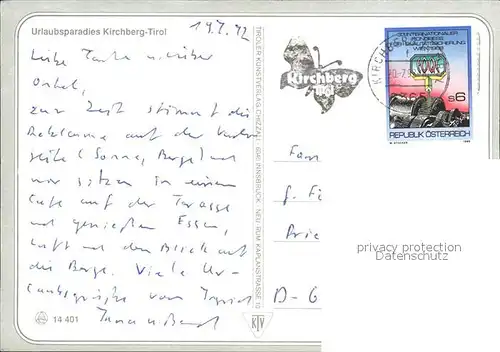 Urlaubsparadies Kirchberg-Tirol
19.7.92
Liebe Tante u. lieber
Onkel,
zur Zeit stimmt die
Reklame auf der
seite (Sonne, Berge) und
wir sitzen in einem
Café auf der Terasse
und genießen Essen,
Luft und den Blick auf
die Berge. Viele Ur-
laubsgrüße von
u. Bernd
14 401
TIROLER KUNSTVERLAG CHIZZALI 6081 INNSBRUCK - NEU-RUM KAPLANSTRASSE 10
KTV
Kirchberg
Tirol
KIRCHBERG
INTERNATIONALER
KONGRESS
QUALITÄTSSICHERUNG
WIEN 1989
S6
REPUBLIK ÖSTERREICH
Fam
g. Fi
Prie
D-6
privacy protection
Datenschutz